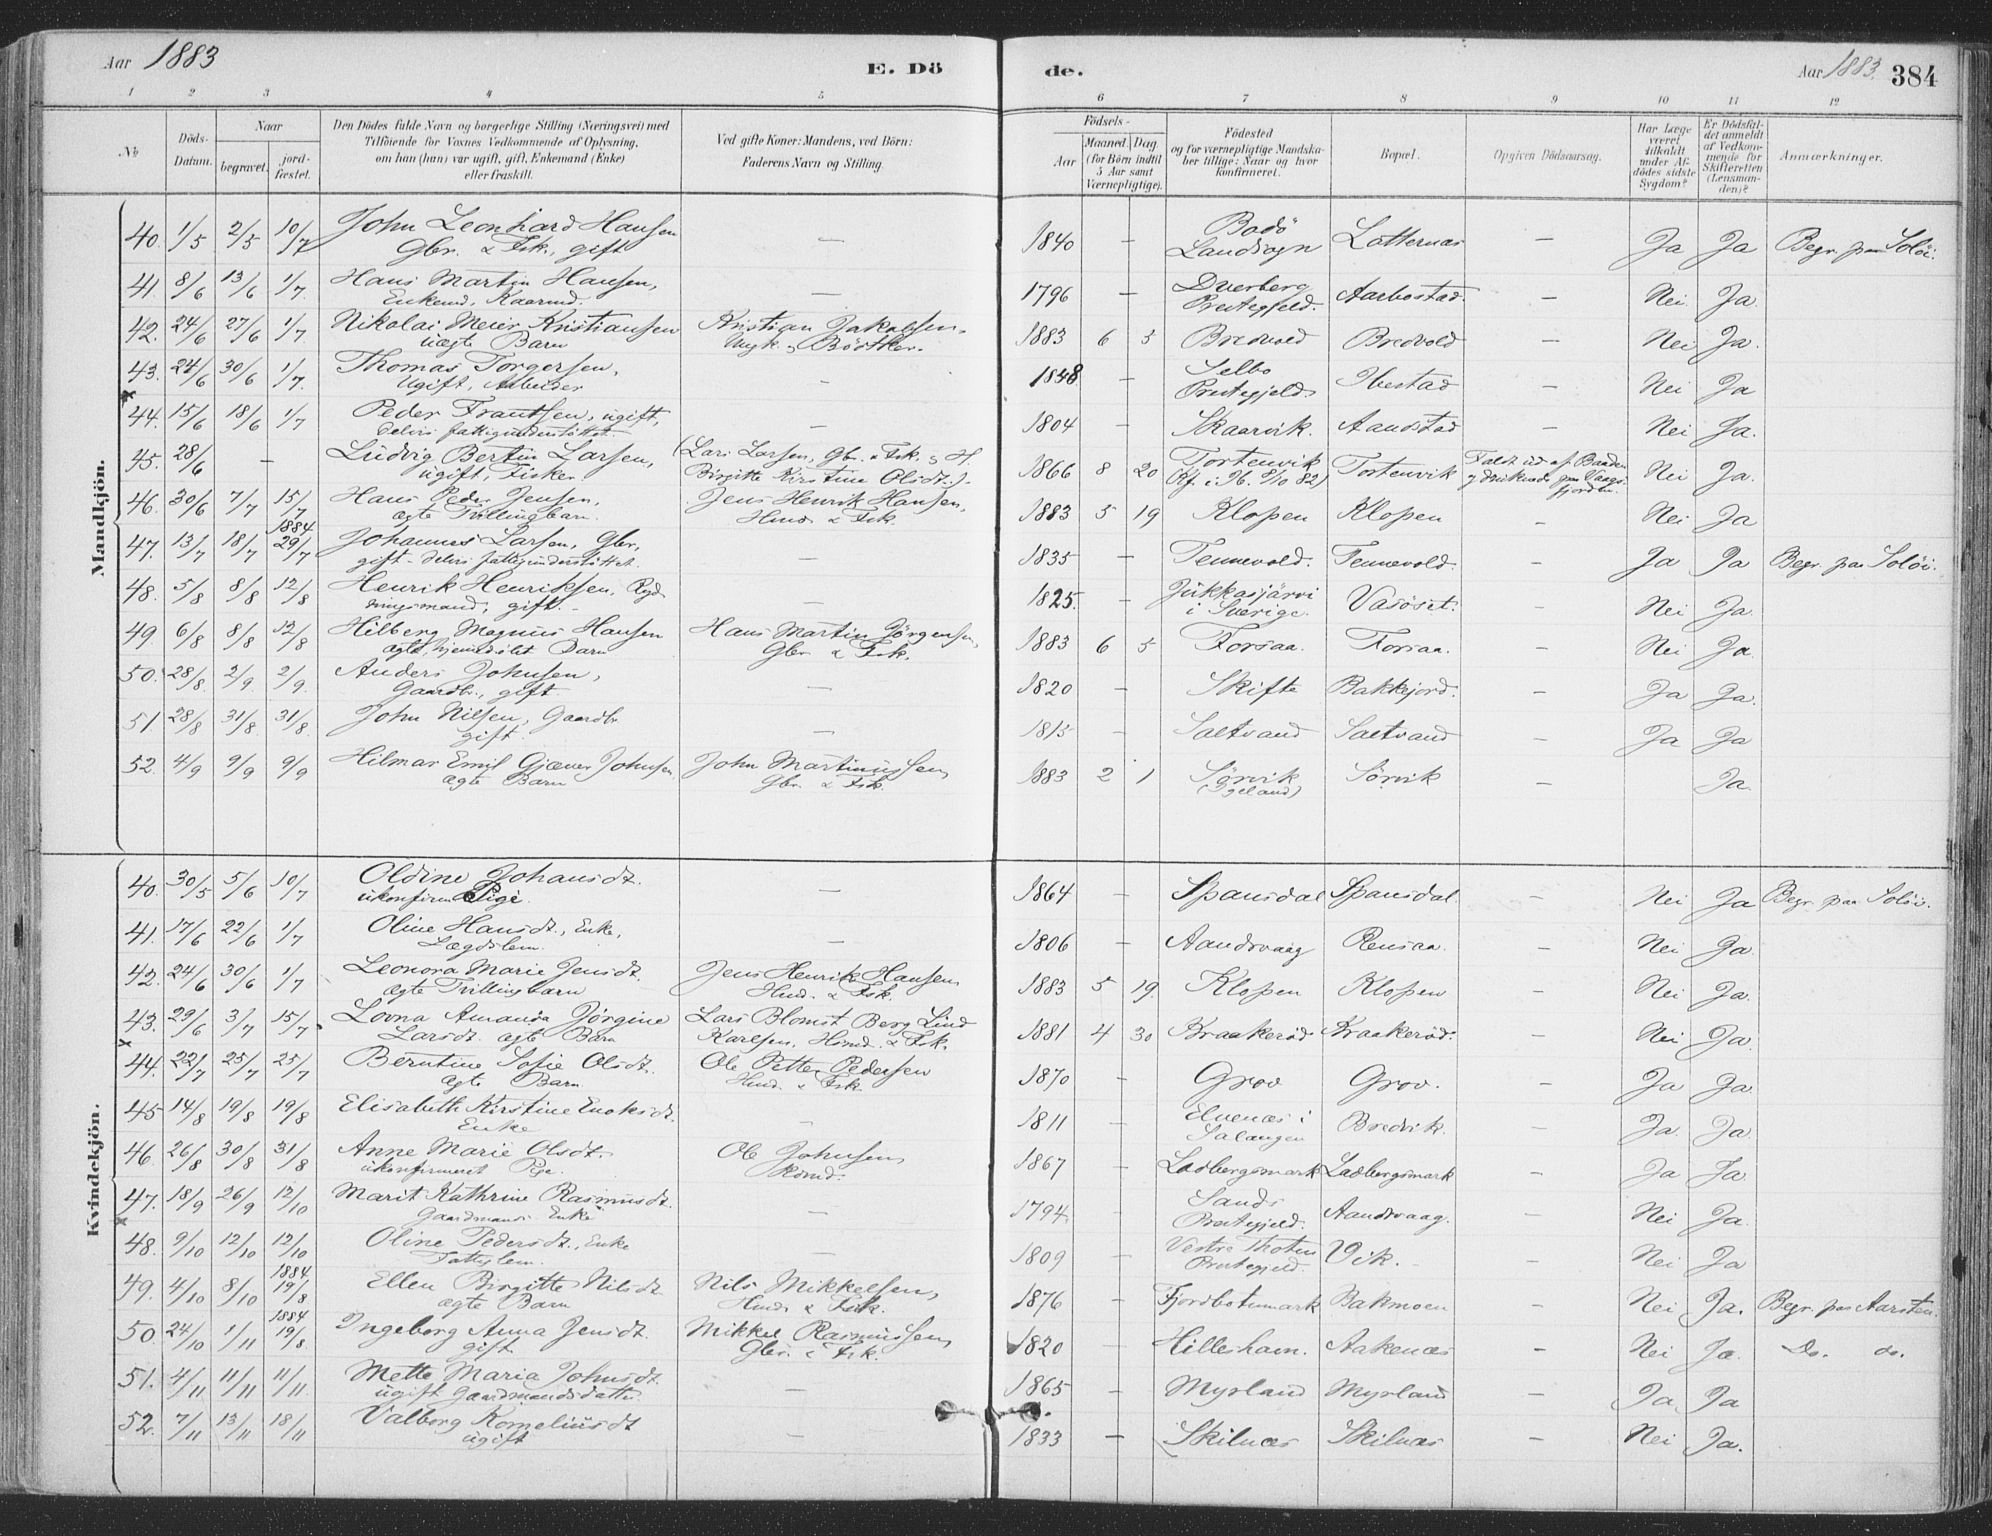 Aar 1883 E. Dö de. Aar 1883. 384
1 2 3 4 5 6 7 8 9 10 11 12
№ Döds-Datum. Naar begravet. jordfæstet. Den Dödes fulde Navn og borgerlige Stilling (Næringsvei) med Tilföiende for Voxnes Vedkommende af Oplysning, om han (hun) var ugift, gift, Enkemand (Enke) eller fraskilt. Ved gifte Koner: Mandens, ved Börn: Faderens Navn og Stilling. Födsels- Aar Maaned. Dag. (for Börn indtil 5 Aar samt Værnepligtige). Födested og for værnepligtige Mandskaber tillige: Naar og hvor konfirmeret. Bopæl. Opgiven Dödsaarsag. Har Læge været tilkaldt under Afdödes sidste Sygdom? Er Dödsfaldet anmeldt af Vedkommende for Skifteretten (Lensmanden)? Anmærkninger.
Mandkjön.
40. 1/5 2/5 10/7 John Leonhard Hansen Gbr. & Fsk., gift — 1840 — Bodö Landsogn Lotternæs — Ja Ja Begr. paa Solöi.
41. 8/6 13/6 1/7 Hans Martin Hansen, Enkemd, Kaarmd. — 1796 — Dverberg Prestegjeld. Aarbostad. — Nei Ja.
42. 24/6 27/6 1/7 Nikolai Meier Kristiansen uægte Barn Kristian Jakobsen, Ungk. Bödtker. 1883 6 5 Bredvold Bredvold — Nei Ja.
43. 24/6 30/6 1/7 Thomas Torgersen, Ugift, Arbeider — 1848 — Selbo Prestegjeld Ibestad — Nei Ja
44. 15/6 18/6 1/7 Peder Frantsen, ugift, delvis fattigunderstöttet. — 1804 — Skaarvik. Aandstad — Nei Ja.
45. 28/6 — Ludvig Bertin Larsen, ugift, Fisker (Lars Larsen, Gbr. & Fsk. & H. Birgitte Kirstine Olsdt.). 1866 8 20 Tortenvik (Kf. i Ib. 8/10 82) Tortenvik Faldt ud af Baaden & druknede paa Vaagsfjorden. Nei Ja.
46. 30/6 7/7 15/7 Hans Peder Jensen, ægte Tvillingbarn. Jens Henrik Hansen, Hmd. & Fsk. 1883 5 19 Klopen Klopen — Nei Ja
47. 13/7 18/7 1884 29/7 Johannes Larsen, Gbr, gift - delvis fattigunderstöttet. — 1835 — Tennevold. Tennevold. — Ja Ja Begr. paa Solöi.
48. 5/8 8/8 12/8 Henrik Henriksen, Rydningsmand, gift. — 1825. — Jukkasjärvi i Sverige. Vasöset. — Nei Ja.
49. 6/8 8/8 12/8 Hilberg Magnus Hansen ægte, hjemmedöbt Barn Hans Martin Jörgensen, Gbr & Fsk. 1883 6 5 Forsaa. Forsaa. — Nei Ja
50. 28/8 2/9 2/9 Anders Johnsen, Gaardbr., gift — 1820 — Skifte Bakkejord. — Ja Ja.
51 28/8 31/8 31/8 John Nilsen, Gaardbr gift. — 1815 — Saltvand Saltvand — Ja Ja
52. 4/9 9/9 9/9 Hilmar Emil Gjæver Johnsen ægte Barn John Martinussen, Gbr & Fsk. 1883 2 1 Sörvik (Igeland) Sörvik — Ja.
Kvindekjön.
40. 30/5 5/6 10/7 Oldine Johansdt. ukonfirm Pige. — 1864 — Spansdal Spansdal. — Nei Ja Begr. paa Solöi.
41. 17/6 22/6 1/7 Oline Hansdt., Enke, Lægdslem. — 1806 — Aandsvaag Rensaa. — Nei Ja.
42. 24/6 30/6 1/7 Leonora Marie Jensdt. ægte Tvillingbarn Jens Henrik Hansen, Hmd. & Fsk. 1883 5 19. Klopen Klopen — Nei Ja.
43. 29/6 3/7 15/7 Lovna Amanda Jörgine Larsdt. ægte Barn Lars Blomst Berg Lind Karlsen, Hmd. & Fsk. 1881 4 30 Kraakeröd Kraakeröd. — Nei Ja.
44. 22/7 25/7 25/7 Berntine Sofie Olsdt. ægte Barn Ole Petter Pedersen Hmd. & Fsk. 1870 — Grov Grov. — Ja Ja.
45 14/8 19/8 19/8 Elisabeth Kirstine Enoksdt. Enke — 1811 — Elvenæs i Salangen Bredvik. — Ja. Ja.
46. 26/8 30/8 31/8 Anne Marie Olsdt. ukonfirmeret Pige. Ole Johnsen, 1867 — Ladbergsmark Ladbergsmark — Ja Ja.
47. 18/9 26/9 12/10 Marit Kathrine Rasmusdt. Gaardmands Enke — 1794. — Sands Prestegjeld. Aandsvaag. — Nei Ja.
48. 9/10 12/10 12/10 Oline Pedersdt., Enke Fattiglem. — 1809 — Vestre Thoten Prestegjeld. Vik. — Nei Ja
49. 4/10 8/10 1884 19/8 Ellen Birgitte Nilsdt. ægte Barn Nils Mikkelsen, Hmd & Fsk. 1876 — Fjordbotnmark Bakmoen — Nei Ja. Begr. paa Aarsten.
50 24/10 1/11 1884 19/8. Ingeborg Anna Jensdt. gift. Mikkel Rasmussen, Gbr. & Fsk. 1820 — Hillesham. Aakenæs — Nei Ja. Do. do.
51. 4/11 11/11 11/11 Mette Maria Johnsdt. ugift Gaardmandsdatter — 1865 — Myrland Myrland — Ja Ja
52. 7/11 13/11 18/11 Valborg Korneliusdt ugift 1833 — Skilnæs Skilnæs — Nei Ja.